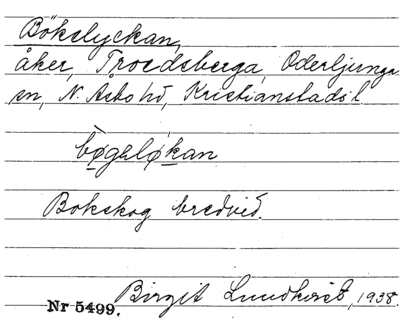 Bökelyckan,
åker, Troedsberga, Oderljunga
sn, N. Åsbo hd, Kristianstads l
bøgeløkan
Bokskog bredvid.
Birgit Lundkvist, 1938.
Nr 5499.